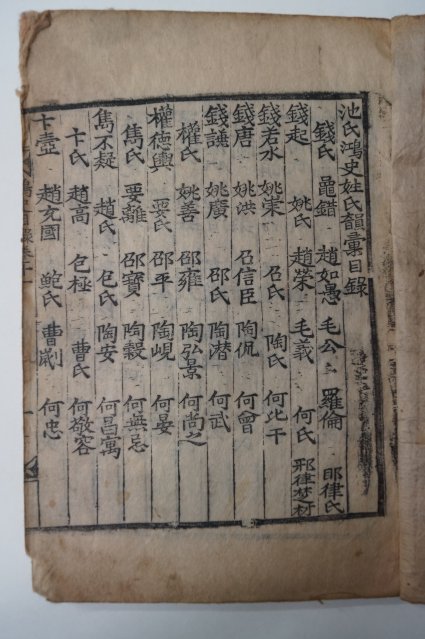 池氏鴻史姓氏韻彙目錄
錢氏 鼂錯 趙如愚 毛公 羅倫 耶律氏
錢起 姚氏 趙榮 毛義 何氏 耶律楚材
錢若水 姚崇 召氏 陶氏 何比干
錢唐 姚洪 召信臣 陶侃 何曾
錢謙 姚廣 邵氏 陶潜 何武
權氏 姚善 邵雍 陶弘景 何尚之
權德輿 要氏 邵平 陶峴 何晏
雋氏 要離 邵寶 陶穀 何無忌
雋不疑 趙氏 包氏 陶安 何昌寓
卞氏 趙高 包極 曹氏 何敬容
卞壼 趙充國 鮑氏 曹劌 何忠